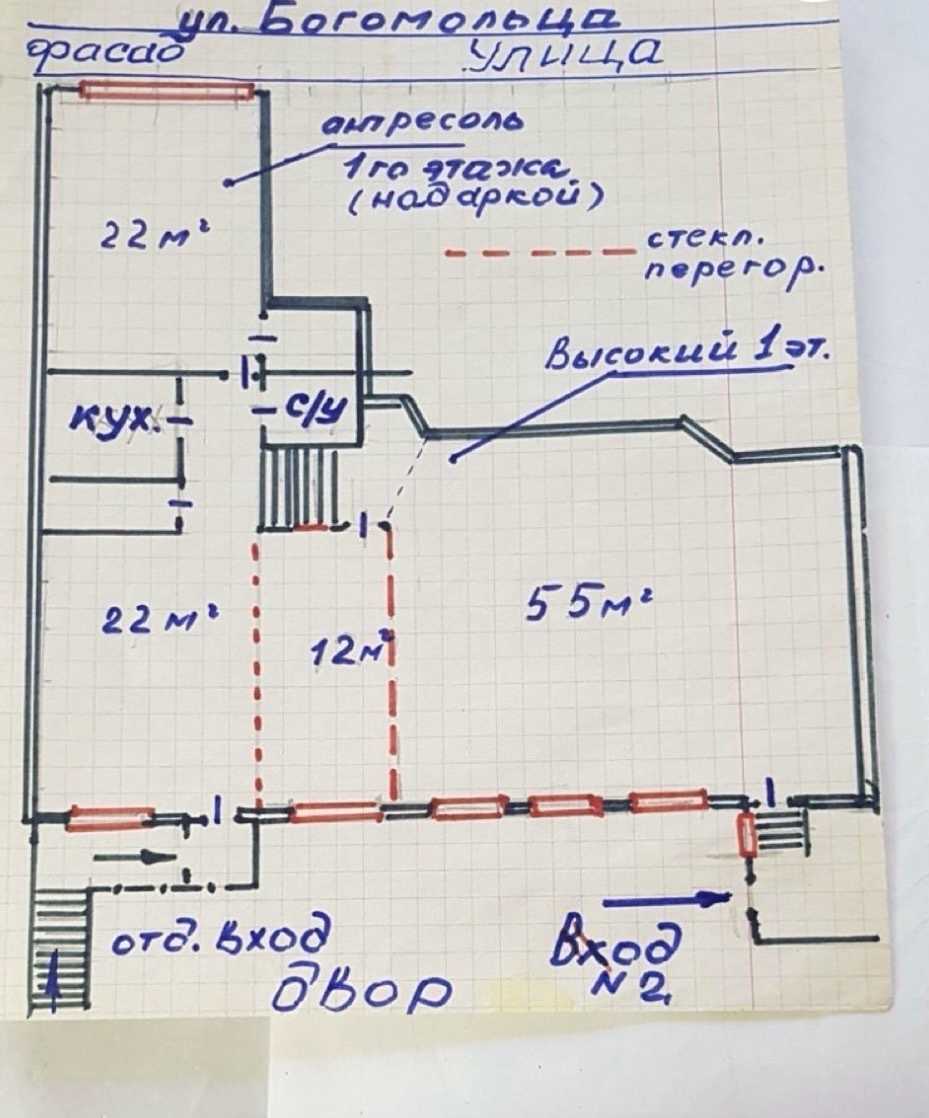 ул. Богомольца
фасад улица
антресоль
1го этажа
(над аркой)
22 м²
стекл.
перегор.
Высокий 1 эт.
кух.
с/у
55м²
22 м²
12м²
отд. Вход
Вход
N 2.
двор